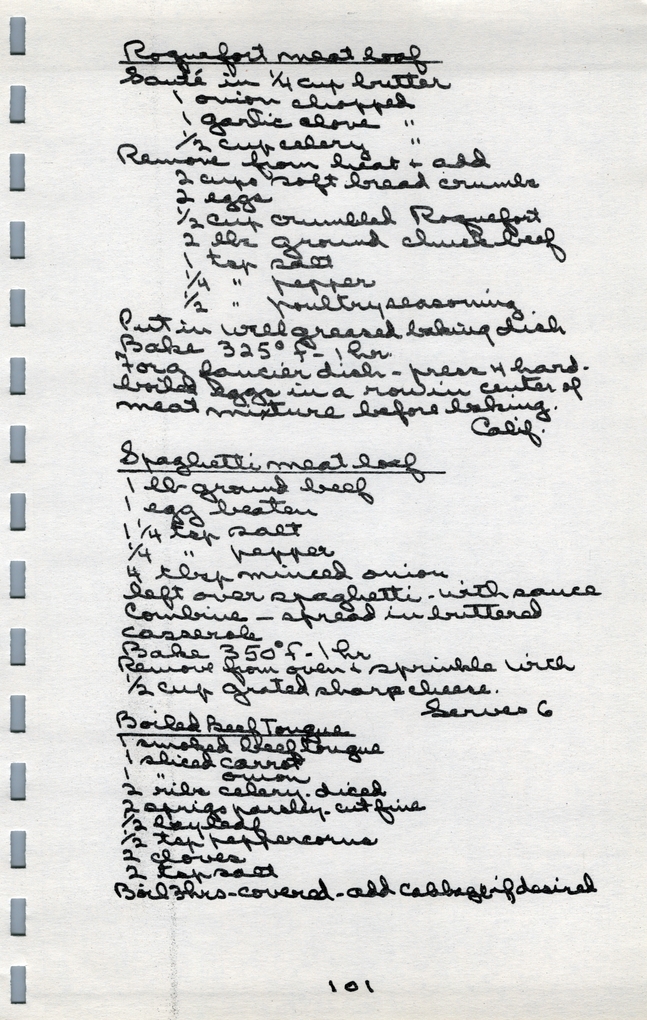 Roquefort meat loaf
Sauté in 1/4 cup butter
1 onion chopped
1 garlic clove "
1/2 cup celery "
Remove from heat + add
2 cups soft bread crumbs
2 eggs
1/2 cup crumbled Roquefort
2 lbs ground chuck beef
1 tsp salt
1/4 " pepper
1/2 " poultry seasoning
Put in well greased baking dish
Bake 325° F - 1 hr.
For a fancier dish - press 4 hard-
boiled eggs in a row in center of
meat mixture before baking.
Calif.
Spaghetti meat loaf
1 lb ground beef
1 egg beaten
1 1/4 tsp salt
1/4 " pepper
4 tbsp minced onion
left over spaghetti - with sauce
Combine - spread in buttered
casserole
Bake 350° F - 1 hr
Remove from oven + sprinkle with
1/2 cup grated sharp cheese.
Serves 6
Boiled Beef Tongue
1 smoked beef tongue
1 sliced carrot
1 " onion
2 ribs celery - diced
2 sprigs parsley - cut fine
1/2 bayleaf
1/2 tsp peppercorns
2 cloves
2 tsp salt
Boil 3 hrs - covered - add cabbage if desired
101